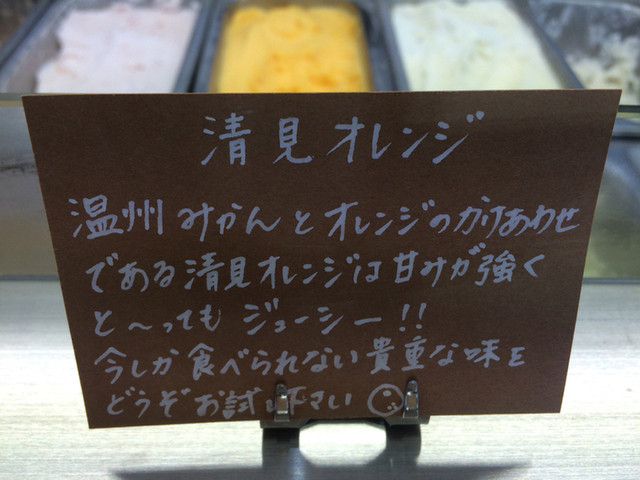 清見オレンジ
温州みかんとオレンジのかけあわせ
である清見オレンジは甘みが強く
と〜ってもジューシー!!
今しか食べられない貴重な味を
どうぞお試し下さい